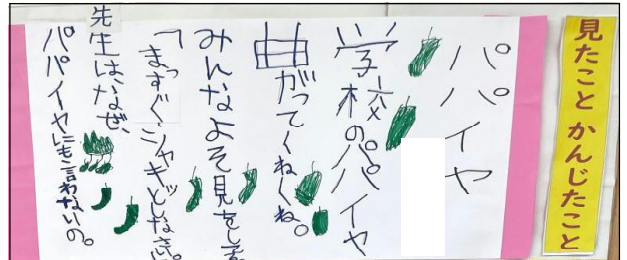 見たこと かんじたこと
パパイヤ
学校のパパイヤ
曲がってくねくね。
みんなよそ見をし
「まっすぐシャキッとしなさい。
先生はなぜ、
パパイヤにも言わないの。